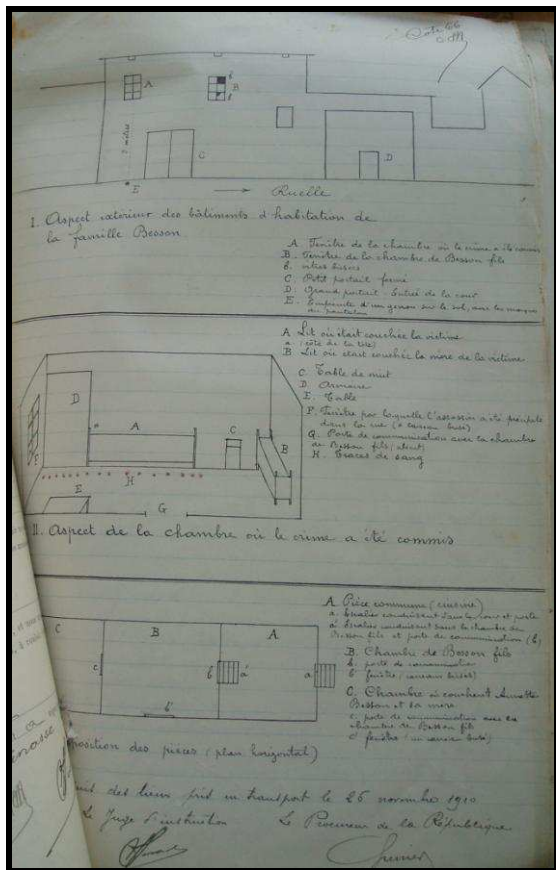 Cote 66
A
B
b
b
C
D
2 mètres
E
Ruelle
I. Aspect extérieur des bâtiments d'habitation de
la famille Besson
A Fenêtre de la chambre où le crime a été commis
B. Fenêtre de la chambre de Besson fils
b. vitres brisées
C Petit portail fermé
D. Grand portail - Entrée de la cour
E. Empreinte d'un genou sur le sol, avec les marques
du pantalon
A Lit où était couchée la victime
a (côté de la tête)
B Lit où était couchée la mère de la victime
C. Table de nuit
D. Armoire
E. Table
F. Fenêtre par laquelle l'assassin a été précipité
dans la rue (a carreau brisé)
G. Porte de communication avec la chambre
de Besson fils
H. Traces de sang
D
F
a
A
C
B
H
E
G
II. Aspect de la chambre où le crime a été commis
A. Pièce commune (cuisine)
a. Escalier conduisant dans la cour et porte
a' Escalier conduisant dans la chambre de
Besson fils et porte de communication (b)
B. Chambre de Besson fils
b. porte de communication
b' fenêtre (carreau brisé)
C. Chambre où couchent
Besson et sa mère
c. porte de communication avec la
chambre de Besson fils
c' fenêtre (un carreau brisé)
C
B
A
c
b
a'
a
b'
position des pièces (plan horizontal)
des lieux pris en transport le 26 novembre 1910
Le Juge d'instruction Le Procureur de la République